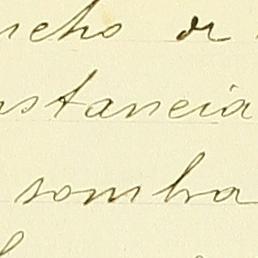 ucho de
nstancia
sombra